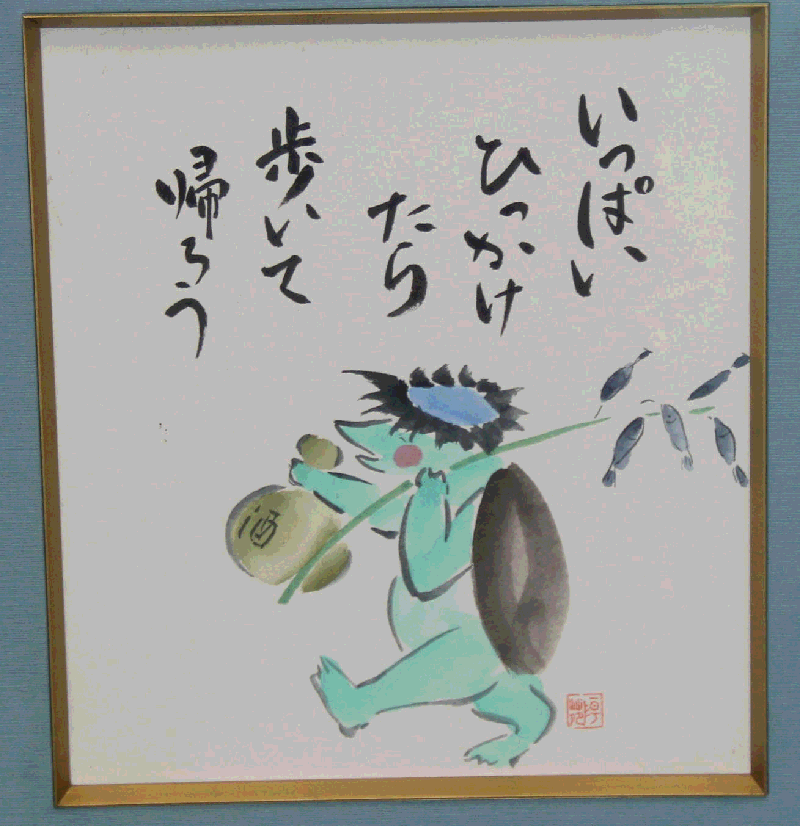 いっぱい
ひっかけ
たら
歩いて
帰ろう
酒